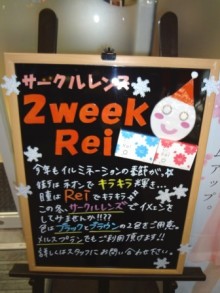 サークルレンズ
2week
Rei
今年もイルミネーションの季節が、
街はネオンでキラキラ輝き…
瞳はReiでキラキラ
この冬、サークルレンズでイメチェンを
してみませんか!!??
色はブラックとブラウンの2色をご用意。
メルスプランでもご利用頂けます!!
詳しくはスタッフにお問い合わせ下さい。